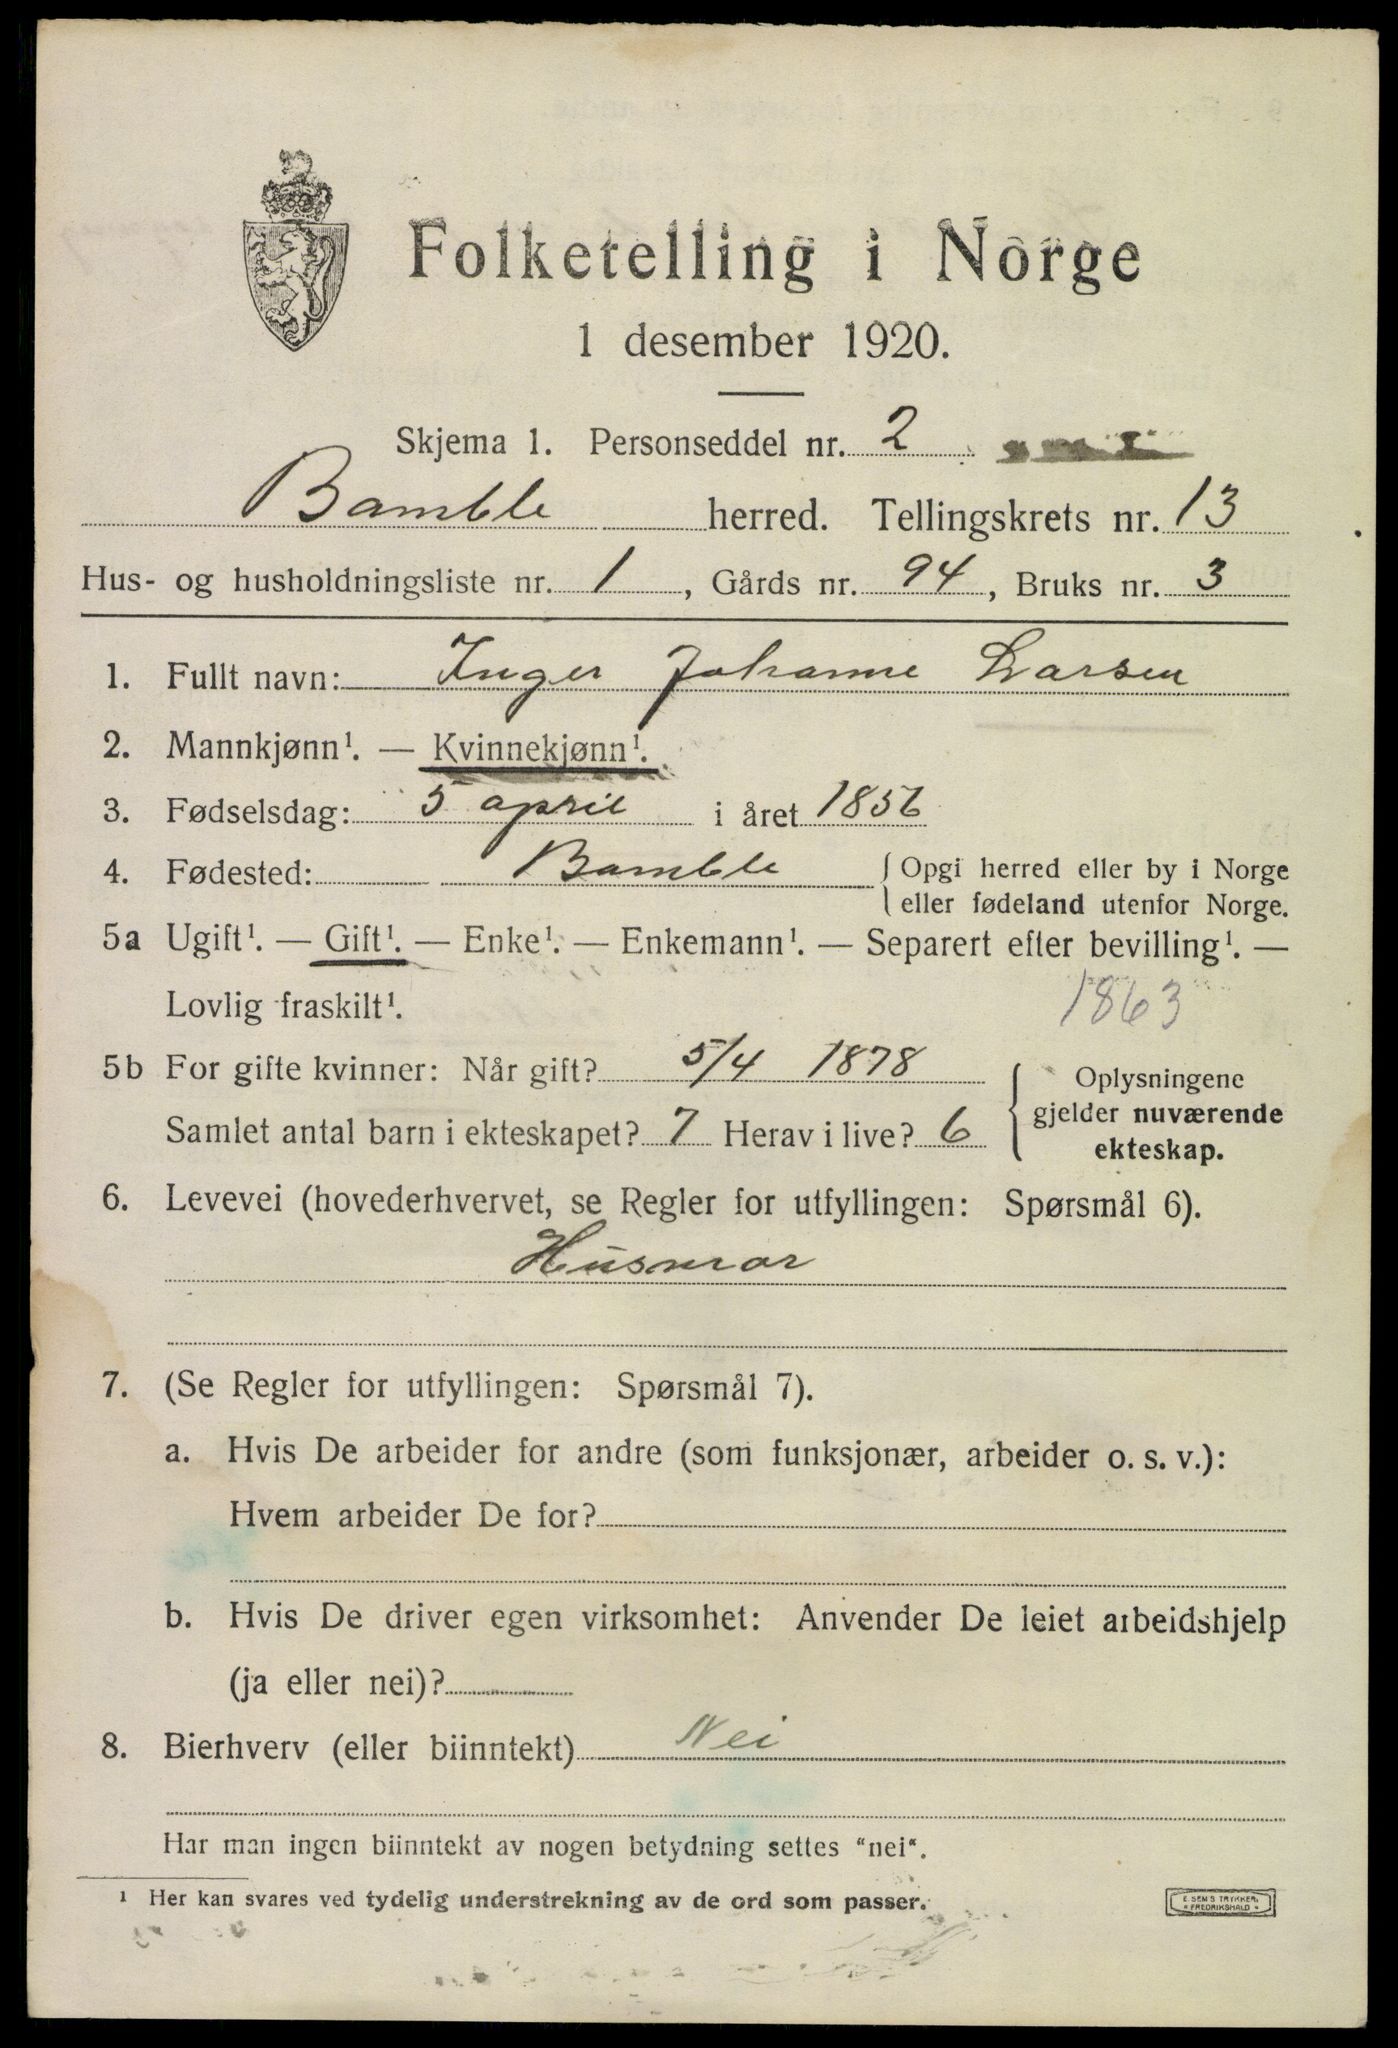 Folketelling i Norge
1 desember 1920.
Skjema 1. Personseddel nr. 2
Bamble herred. Tellingskrets nr. 13
Hus- og husholdningsliste nr. 1, Gårds nr. 94, Bruks nr. 3
1. Fullt navn: Inger Johanne Larsen
2. Mannkjønn¹. — Kvinnekjønn¹.
3. Fødselsdag: 5 april i året 1856
4. Fødested: Bamble { Opgi herred eller by i Norge
eller fødeland utenfor Norge.
5a Ugift¹. — Gift¹. — Enke¹. — Enkemann¹. — Separert efter bevilling¹. —
Lovlig fraskilt¹. 1863
5b For gifte kvinner: Når gift? 5/4 1878
Samlet antal barn i ekteskapet? 7 Herav i live? 6
{ Oplysningene
gjelder nuværende
ekteskap.
6. Levevei (hovederhvervet, se Regler for utfyllingen: Spørsmål 6).
Husmor
7. (Se Regler for utfyllingen: Spørsmål 7).
a. Hvis De arbeider for andre (som funksjonær, arbeider o. s. v.):
Hvem arbeider De for?
b. Hvis De driver egen virksomhet: Anvender De leiet arbeidshjelp
(ja eller nei)?
8. Bierhverv (eller biinntekt) Nei
Har man ingen biinntekt av nogen betydning settes "nei".
¹ Her kan svares ved tydelig understrekning av de ord som passer.
E. SEM'S TRYKKERI
FREDRIKSHALD